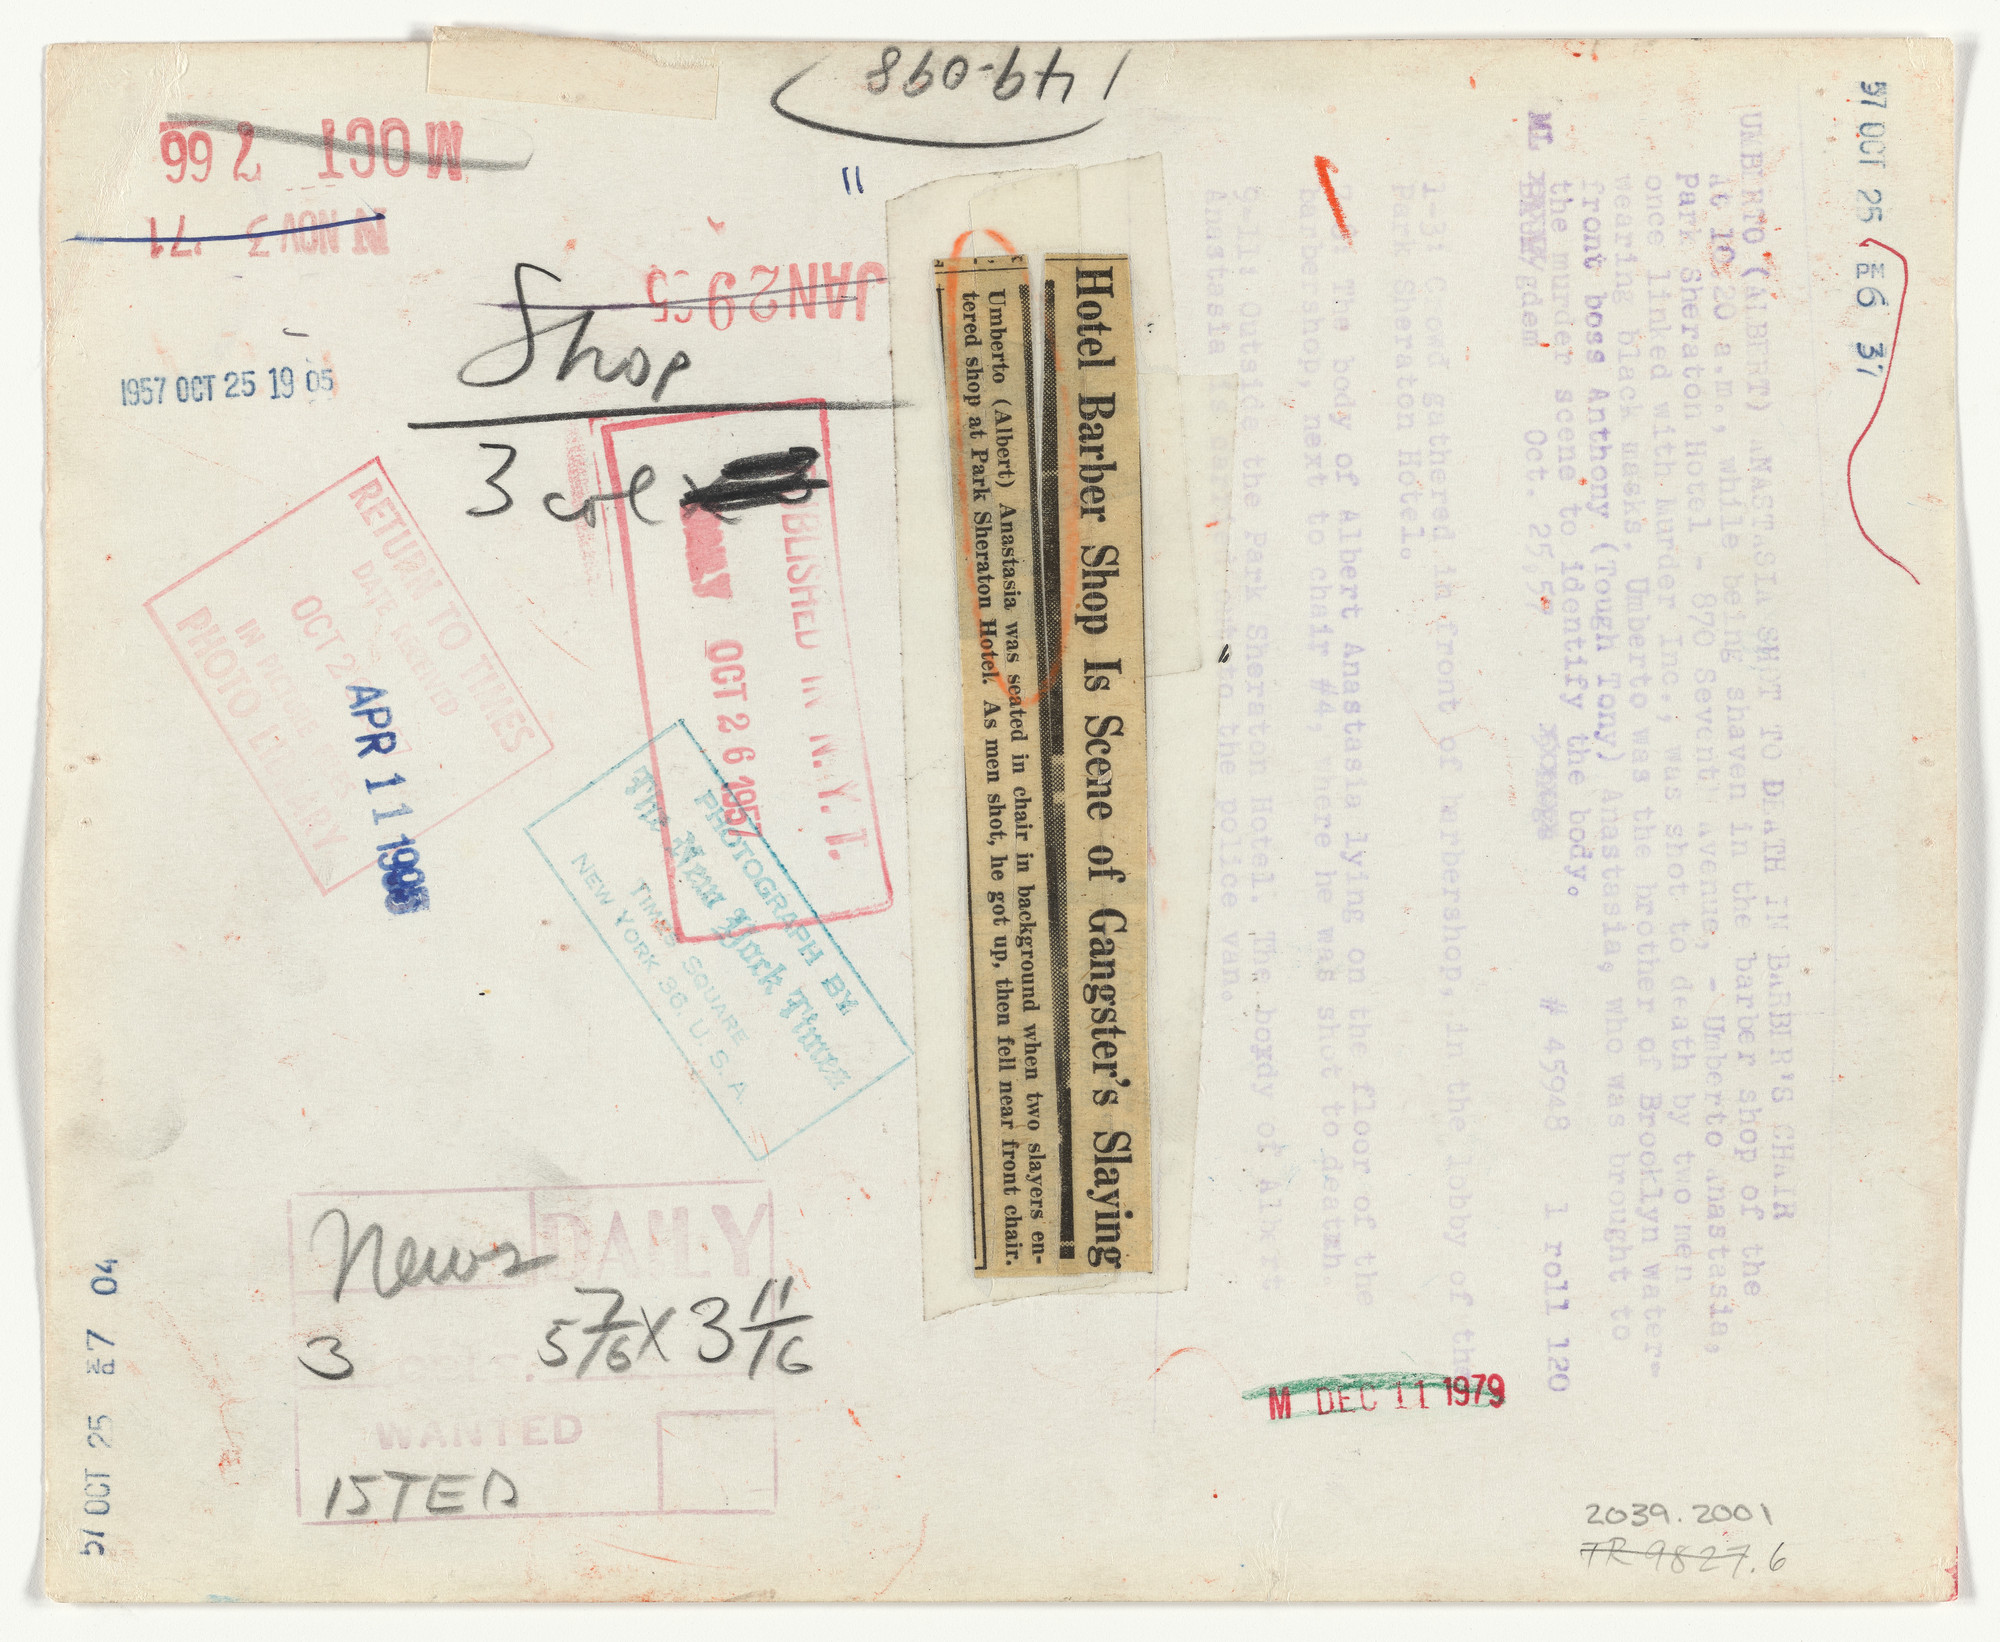 149-098
M OCT 7 66
N NOV 3 '71
JAN 29
1957 OCT 25 19 05
Shop
3 col x
PUBLISHED IN N.Y.T.
OCT 26 1957
RETURN TO TIMES
DATE RECEIVED
OCT
PHOTO
APR 11 1995
PHOTOGRAPH BY
The New York Times
TIMES SQUARE
NEW YORK 36, U. S. A.
Hotel Barber Shop Is Scene of Gangster's Slaying
Umberto (Albert) Anastasia was seated in chair in background when two slayers en-
tered shop at Park Sheraton Hotel. As men shot, he got up, then fell near front chair.
57 OCT 25 6 37
UMBERTO (ALBERT) ANASTASIA SHOT TO DEATH IN BARBER'S CHAIR
At 10 20 a.m., while being shaven in the barber shop of the
Park Sheraton Hotel - 870 Seventh Avenue, - Umberto Anastasia,
once linked with Murder Inc., was shot to death by two men
wearing black masks. Umberto was the brother of Brooklyn water-
front boss Anthony (Tough Tony) Anastasia, who was brought to
the murder scene to identify the body.
Oct. 25,57 # 45948 1 roll 120
1-3: Crowd gathered in front of barbershop, in the lobby of the
Park Sheraton Hotel.
The body of Albert Anastasia lying on the floor of the
barbershop, next to chair #4, where he was shot to deatxh
9-11: Outside the Park Sheraton Hotel. The boxdy of Albert
Anastasia is carried out to the police van.
57 OCT 25 7 04
DAILY
News
3
5 7/16 x 3 11/16
WANTED
15TED
M DEC 11 1979
2039.2001
TR 9827.6